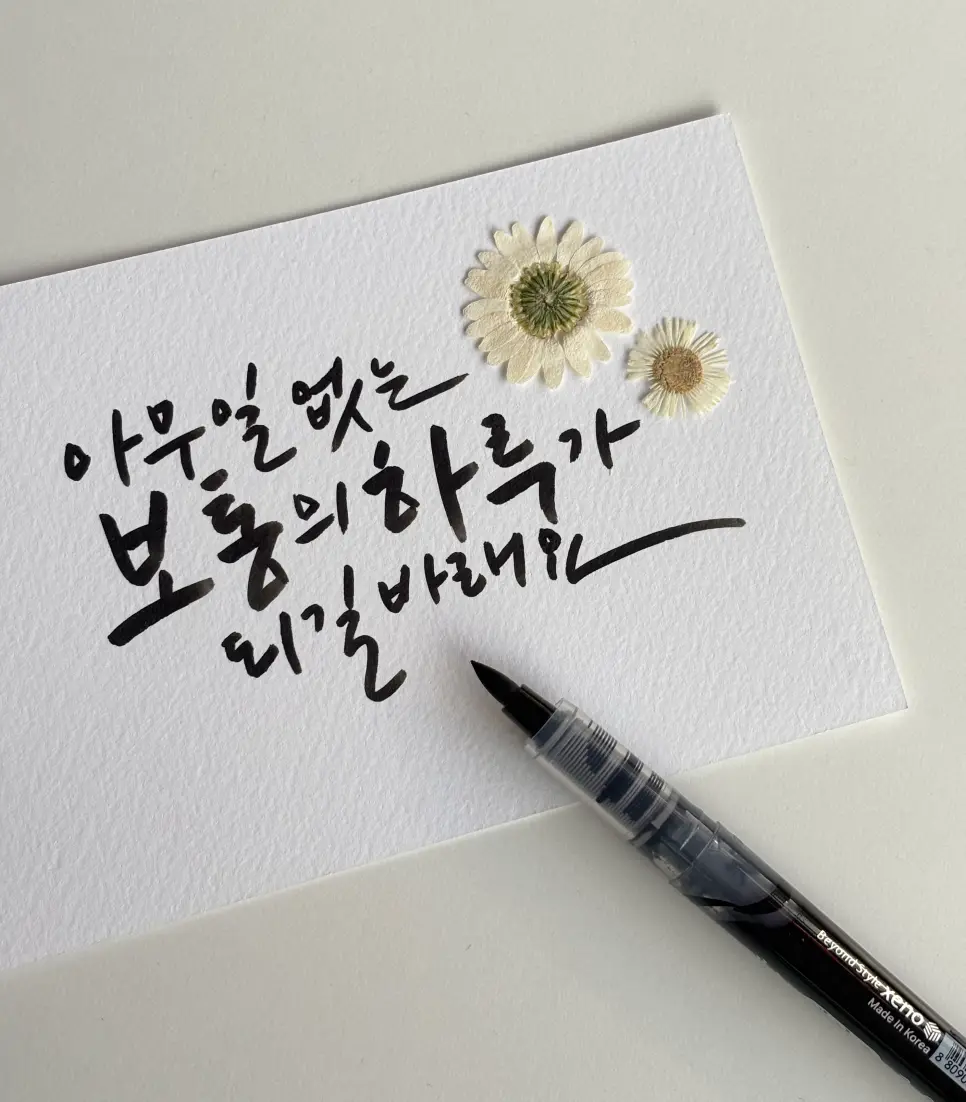 아무일 없는
보통의 하루가
되길 바래요
Beyond Style xeno
Made in Korea
8 8090